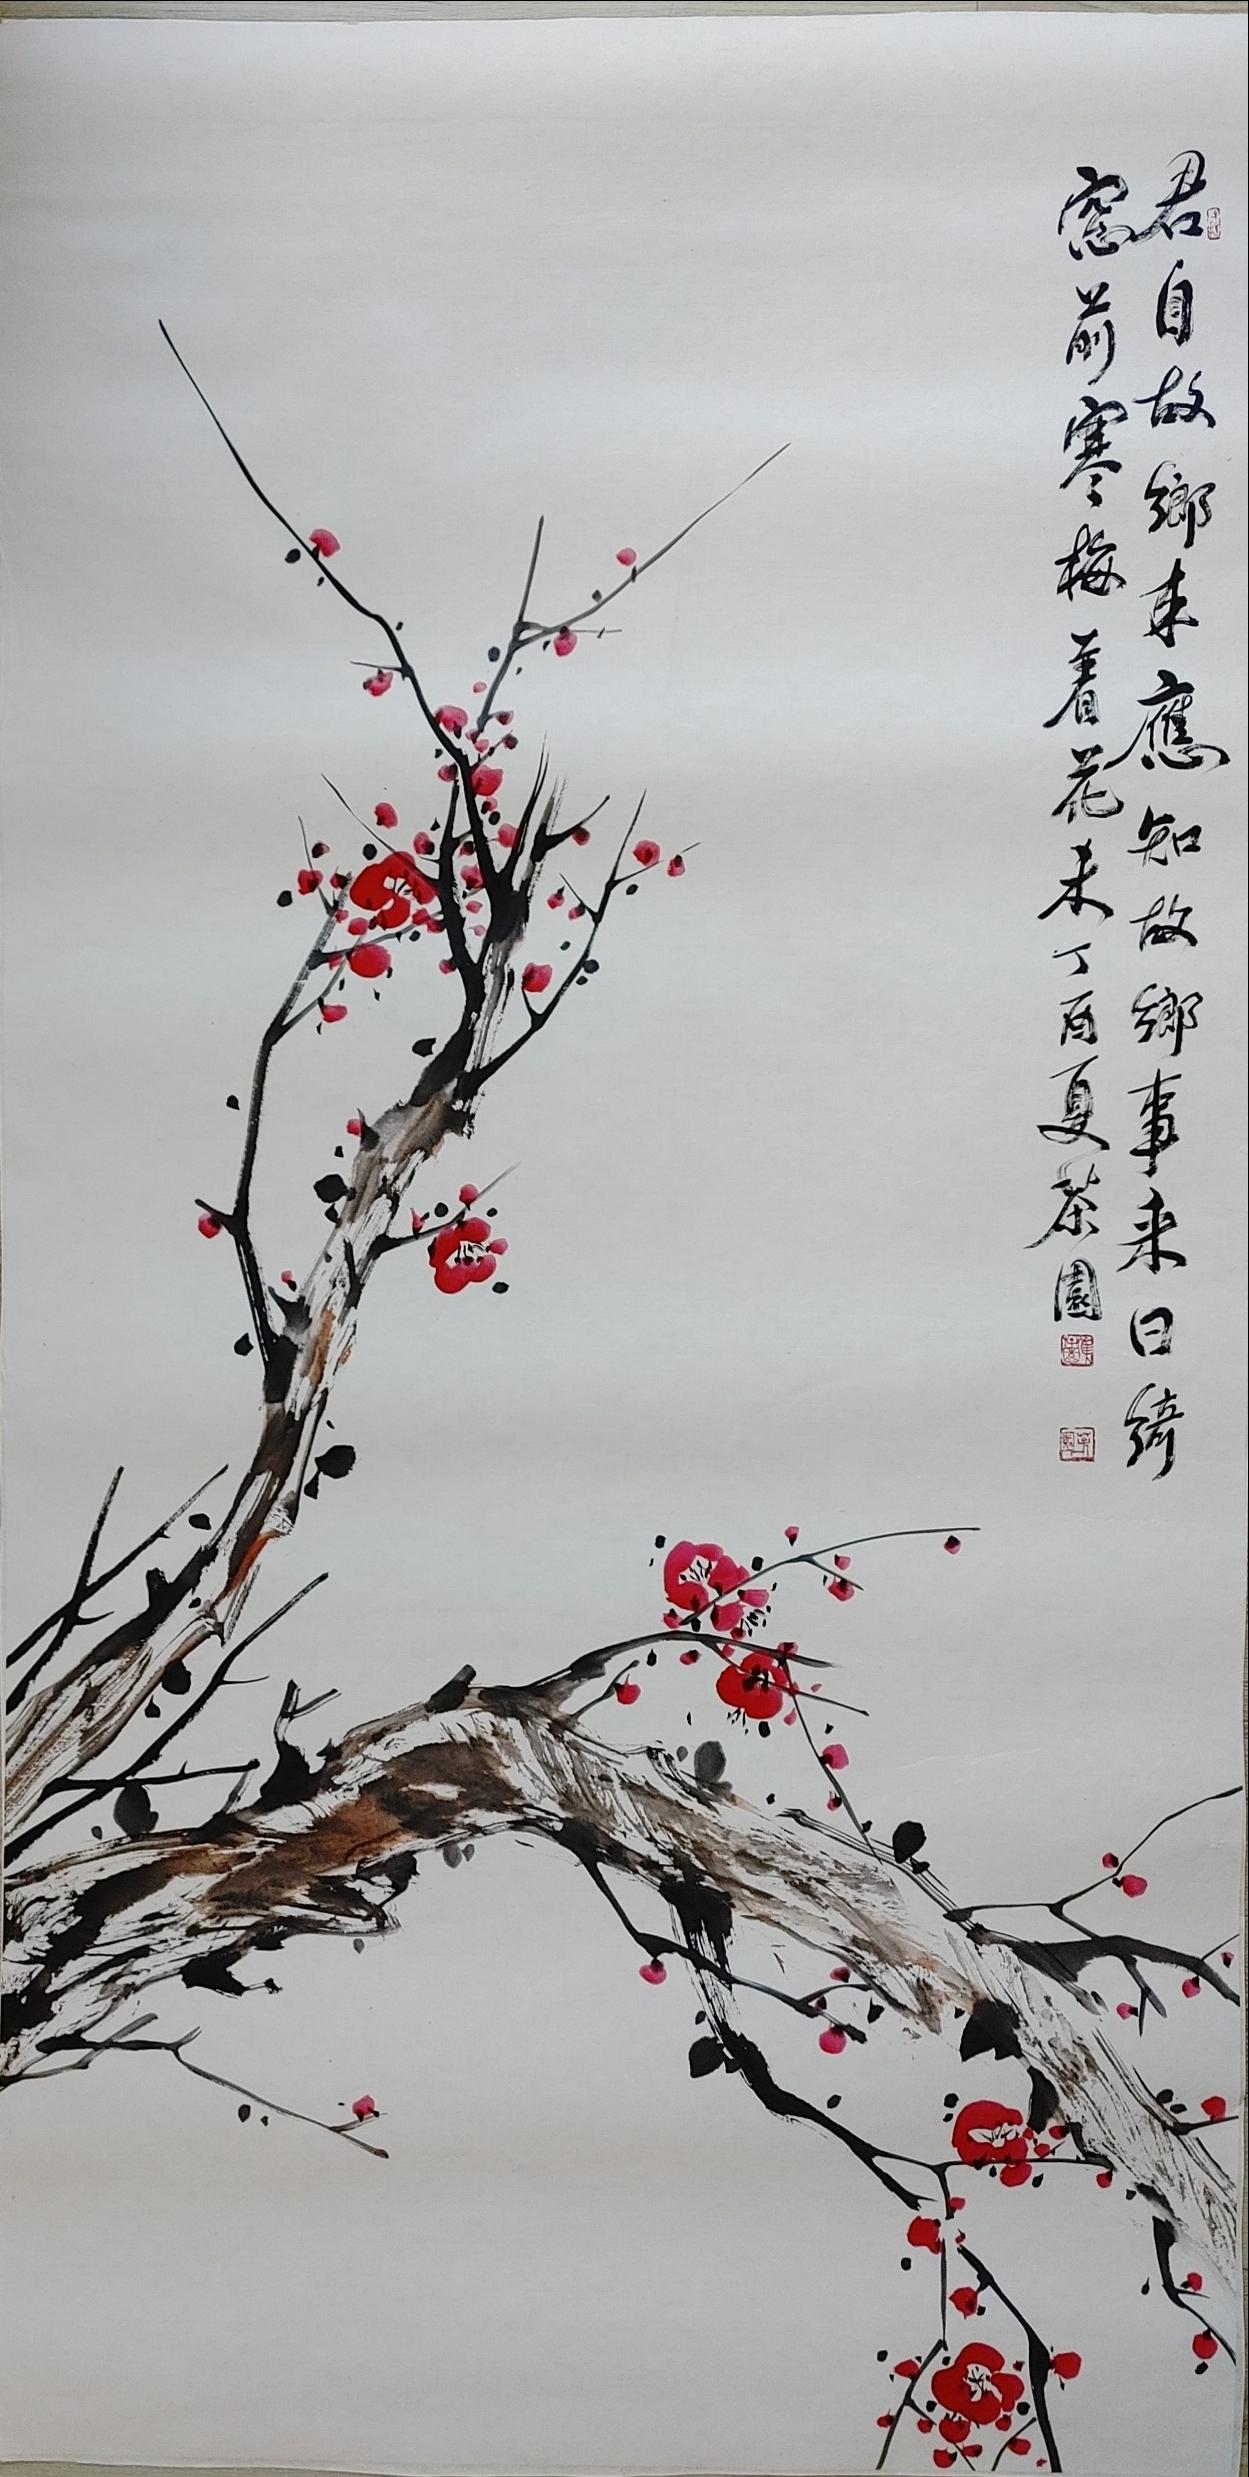 君自故鄉来應知故鄉事来日綺
窓前寒梅著花未丁酉夏茶園